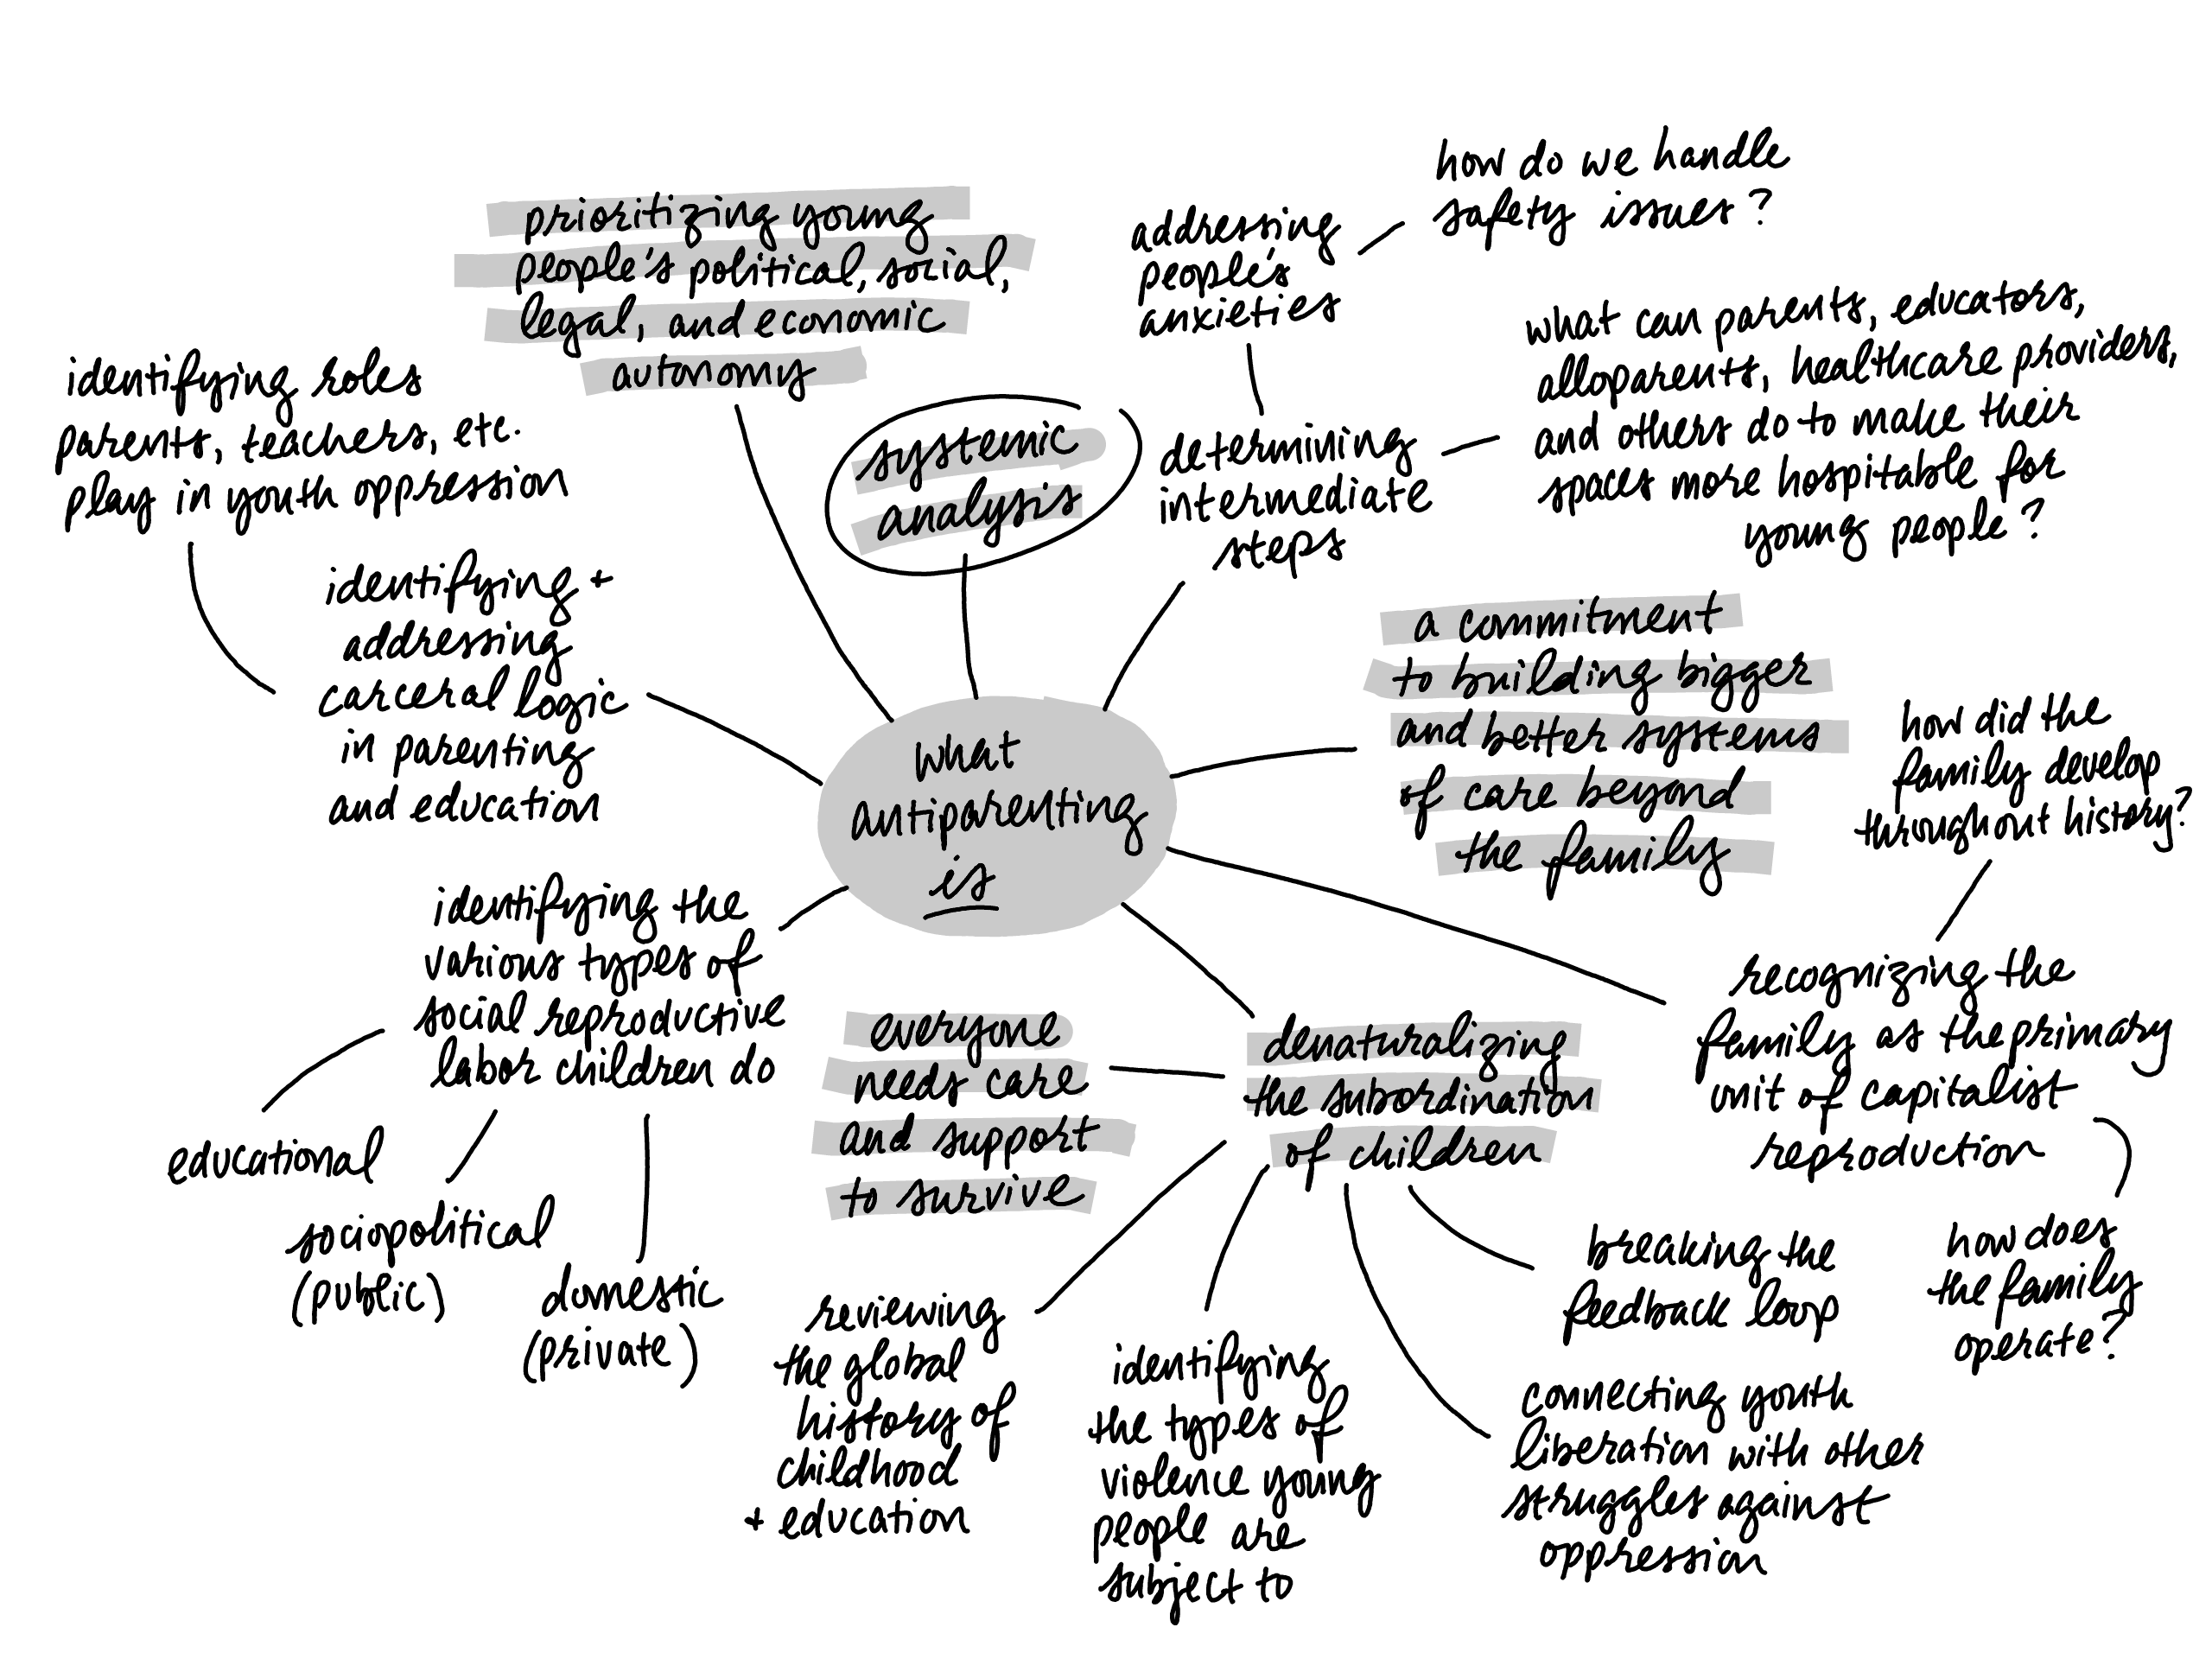 how do we handle
safety issues?
addressing
people's
anxieties
prioritizing young
people's political, social,
legal, and economic
autonomy
what can parents, educators,
alloparents, healthcare providers,
and others do to make their
spaces more hospitable for
young people?
identifying roles
parents, teachers, etc.
play in youth oppression
systemic
analysis
determining
intermediate
steps
identifying +
addressing
carceral logic
in parenting
and education
a commitment
to building bigger
and better systems
of care beyond
the family
how did the
family develop
throughout history?
what
antiparenting
is
identifying the
various types of
social reproductive
labor children do
recognizing the
family as the primary
unit of capitalist
reproduction
everyone
needs care
and support
to survive
denaturalizing
the subordination
of children
educational
sociopolitical
(public)
domestic
(private)
how does
the family
operate?
breaking the
feedback loop
reviewing
the global
history of
childhood
+ education
identifying
the types of
violence young
people are
subject to
connecting youth
liberation with other
struggles against
oppression